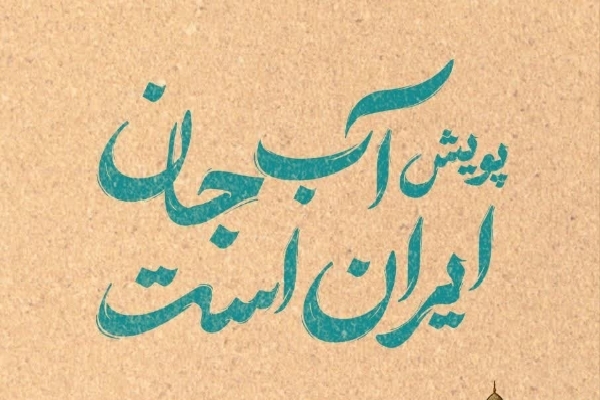 پویش آب جان
ایران است